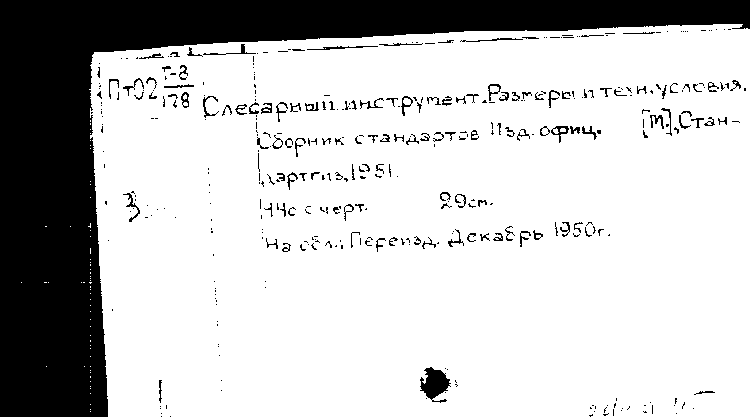 Пт02 Т-8/128
Слесарный инструмент. Размеры и техн. условия.
Сборник стандартов Изд. офиц. [М.], Стан-
дартгиз, 1951.
44с с черт. 29см.
З
На обл.: Переизд. Декабрь 1950г.